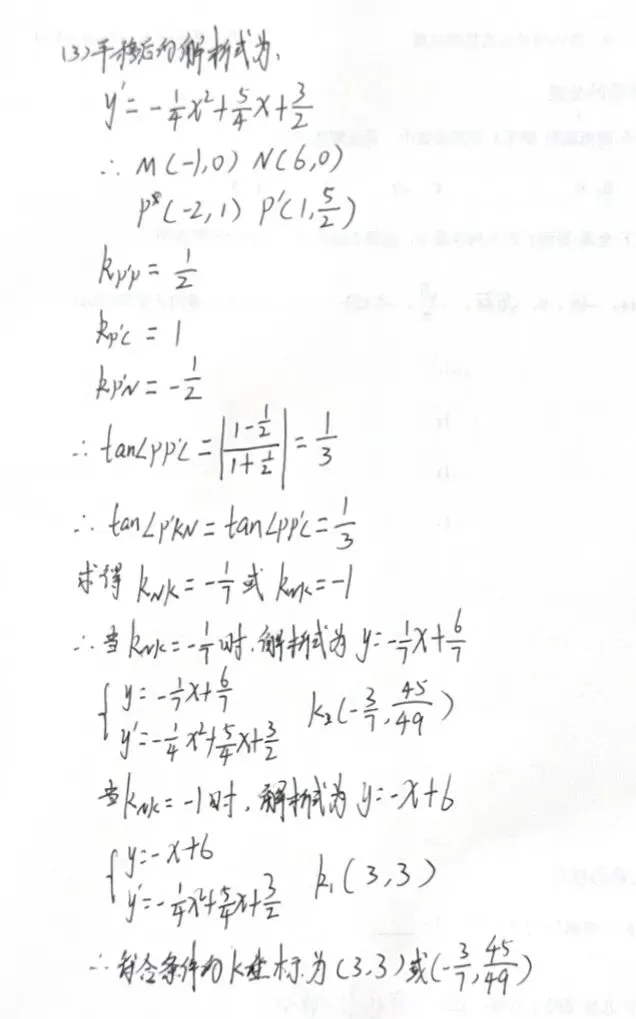 (3)平移后的解析式为,
y'=-1/4x²+5/4x+3/2
∴ M(-1,0) N(6,0)
P(-2,1) P'(1,5/2)
kpp'=1/2
kp'c=1
kp'N=-1/2
∴ tan∠PP'C=|(1-1/2)/(1+1/2)|=1/3
∴ tan∠P'KN=tan∠PP'C=1/3
求得 kNK=-1/7或 kNK=-1
∴当kNK=-1/7时,解析式为 y=-1/7x+6/7
{y=-1/7x+6/7
y'=-1/4x²+5/4x+3/2 K₂(-3/7,45/49)
当kNK=-1时,解析式为 y=-x+6
{y=-x+6
y'=-1/4x²+5/4x+3/2 k₁(3,3)
∴符合条件的K坐标为(3,3)或(-3/7,45/49)